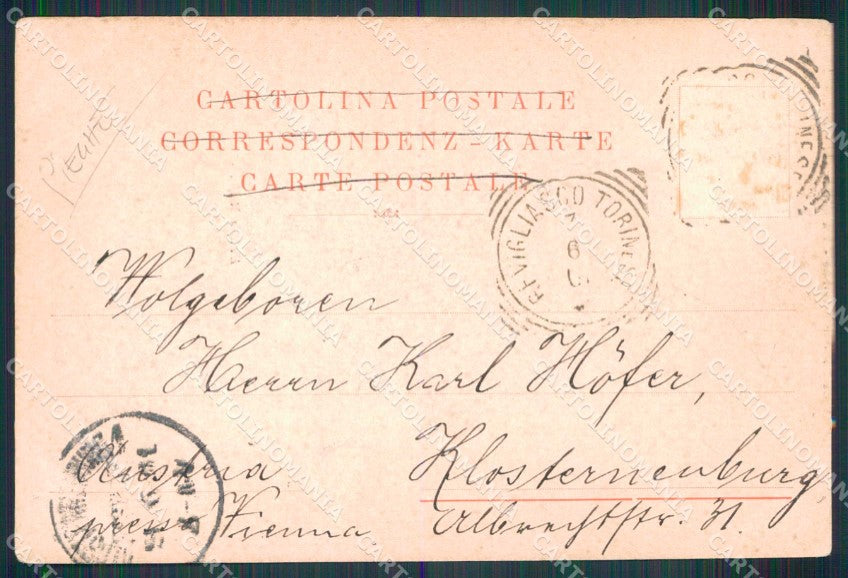 CARTOLINA POSTALE
CORRESPONDENZ - KARTE
CARTE POSTALE
RIVIGLIASCO TORINESE
6
Wolgeboren
Herrn Karl Höfer,
Klosterneuburg,
Albrechtstr. 31.
Austria
presso Vienna
CARTOLINOMANIA